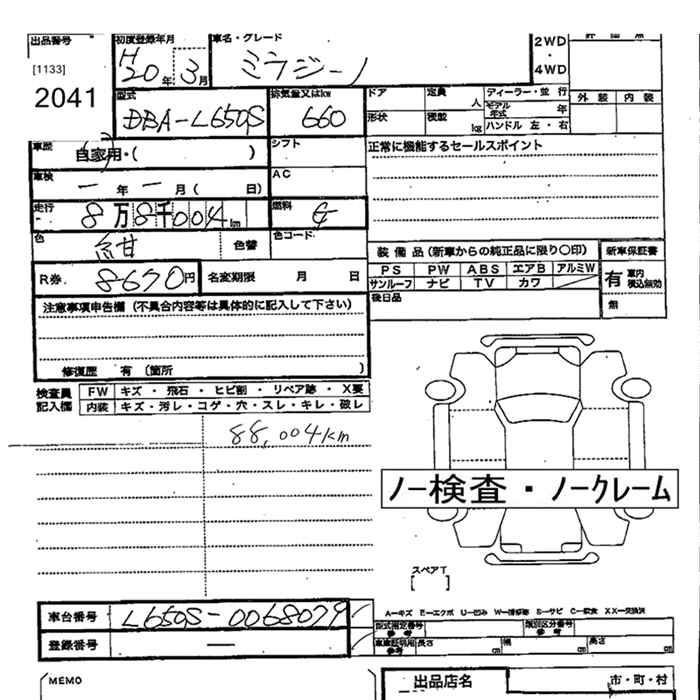 出品番号
[1133]
2041
初度登録年月
H20年 3月
車名・グレード
ミラジーノ
2WD
・
4WD
外装 内装
型式
DBA-L650S
排気量又はkw
660
ドア
定員
人
形状
積載
kg
ディーラー・並行
モデル年式 年
ハンドル 左・右
車歴
自家用・( )
シフト
正常に機能するセールスポイント
車検
一 年 一 月 ( 日)
AC
走行
8万8千004km
燃料
G
色
紺
色替
色コード
装備品(新車からの純正品に限り〇印)
新車保証書
PS PW ABS エアB アルミW
サンルーフ ナビ TV カワ
有 車内積込無効
無
R券.
8670円
名変期限 月 日
後日品
注意事項申告欄(不具合内容等は具体的に記入して下さい)
修復歴 有 〔箇所 〕
検査員記入欄
FW キズ ・ 飛石 ・ ヒビ割 ・ リペア跡 ・ X要
内装 キズ・汚レ・コゲ・穴・スレ・キレ・破レ
88,004km
ノー検査・ノークレーム
スペアT
[ ]
車台番号
L650S-0068079
登録番号
—
型式指定番号
参考
類別区分番号
参考
車庫証明用
参考
長さ cm 幅 cm 高さ cm
MEMO
出品店名
市・町・村